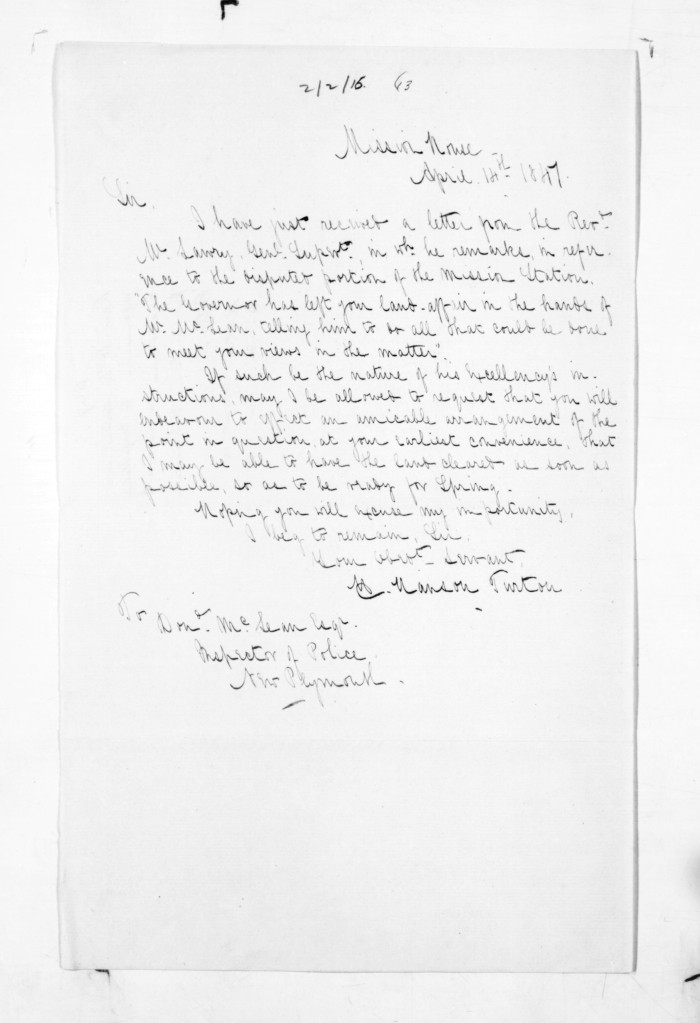 2/2/15. 63
Mission House
April 14th 1847.
Sir.
I have just received a letter from the Revd.
Mr. Lawry, Genl. Supert., in wh. he remarks, in refer-
ence to the disputed portion of the Mission Station,
"The Governor has left your land-affair in the hands of
Mr. McLean, telling him to do all that could be done
to meet your views in the matter".
If such be the nature of his Excellency's in-
structions, may I be allowed to request that you will
endeavour to effect an amicable arrangement of the
point in question, at your earliest convenience, that
I may be able to have the land cleared as soon as
possible, so as to be ready for Spring.
Hoping you will excuse my importunity,
I beg to remain, Sir,
Your obedt. Servant,
H. Hanson Turton
To
Dond. McLean Esqr.
Inspector of Police
New Plymouth.